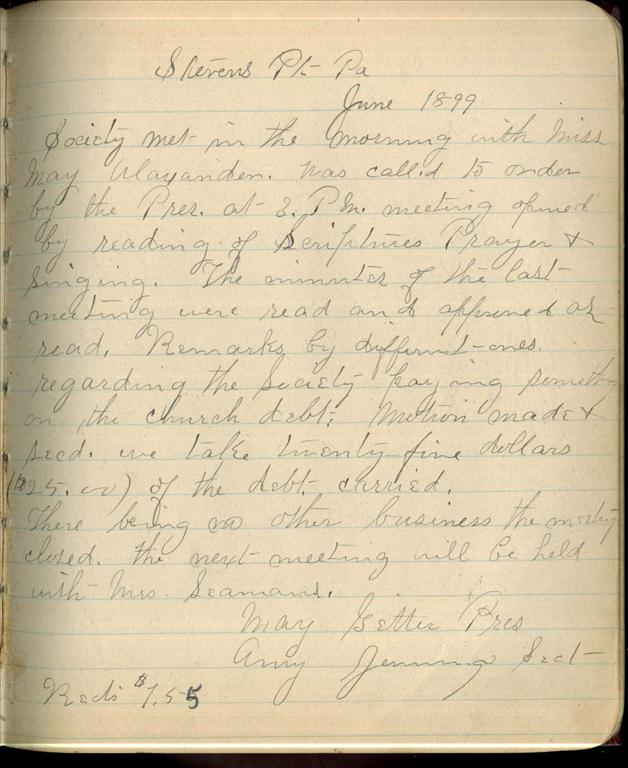 Stevens Pt Pa
June 1899
Society met in the morning with Miss
May Alaxander. was called to order
by the Pres. at 8. P.M. meeting opened
by reading of Scriptures Prayer &
singing. The minutes of the last
meeting were read and approved as
read. Remarks by different ones.
regarding the Society paying something
on the church debt. Motion made &
secd. we take twenty five dollars
($25.00) of the debt. carried.
There being no other business the meeting
closed. the next meeting will be held
with Mrs. Seamans.
May Getter Pres
Amy Jenning Sect
Recd $1.55